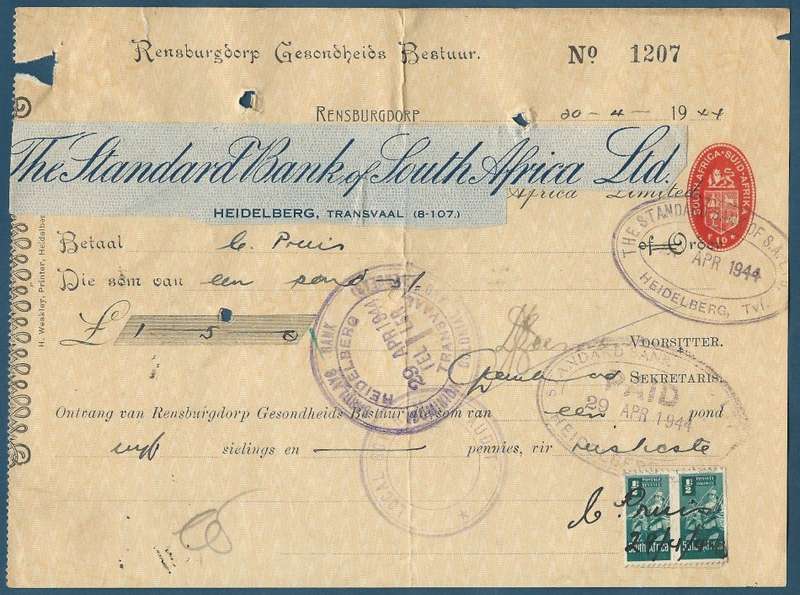 Rensburgdorp Gesondheids Bestuur. No 1207
Rensburgdorp 20-4- 1944
The Standard Bank of South Africa Ltd.
Africa Limited
HEIDELBERG, TRANSVAAL (8-107.)
SOUTH AFRICA · SUID-AFRIKA
Betaal C. Pruis of Order
THE STANDARD BANK OF S.A. LTD.
APR 1944
HEIDELBERG, Tvl.
Die som van een pond 5/-
£ 1 5 0
HEIDELBERG
29 APR 1944
TRANSVAAL
VOORSITTER.
SEKRETARIS.
STANDARD BANK
PAID
29 APR 1944
Ontvang van Rensburgdorp Gesondheids Bestuur die som van een pond
vyf sielings en — pennies, vir reiskoste
C. Pruis
South Africa
H. Weakley, Printer, Heidelberg